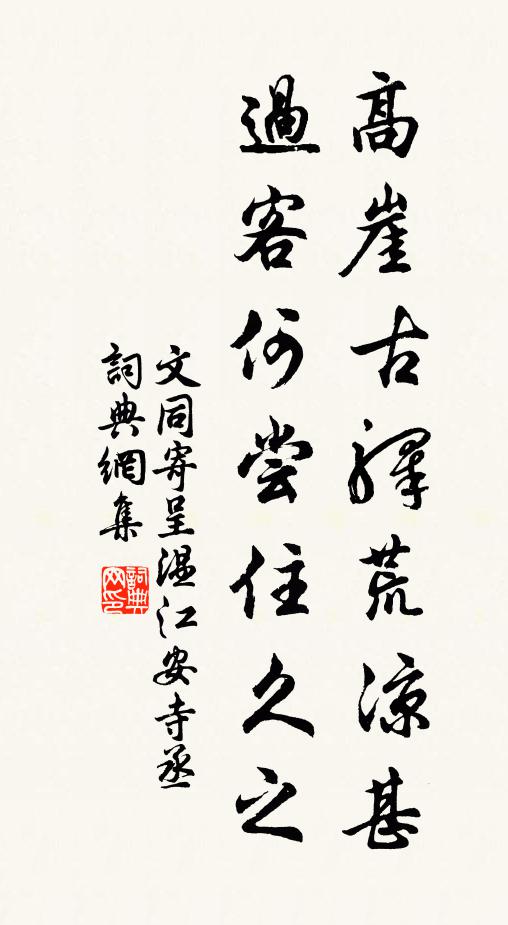 高崖古驛荒涼甚
過客何嘗住久之
文同寄呈溫江安寺丞
詞典網集
詞典網印